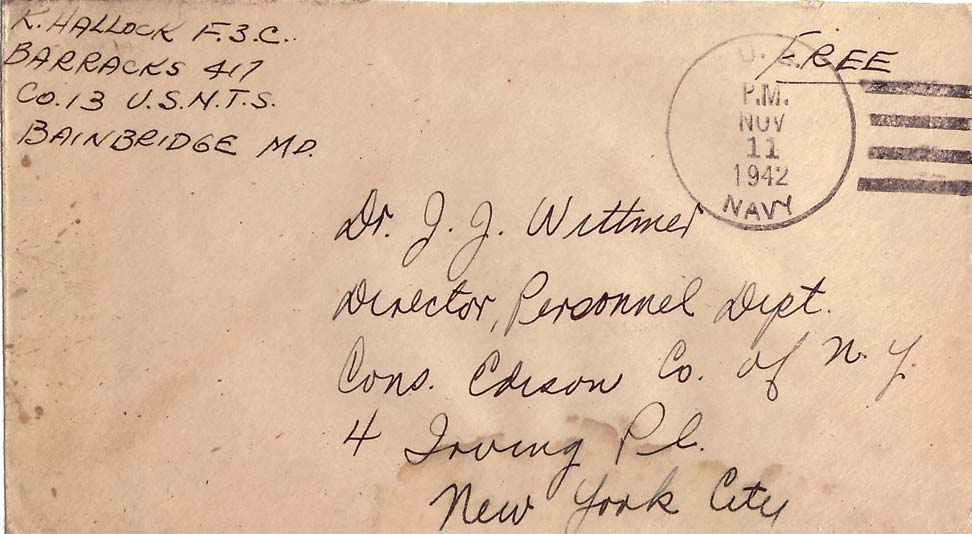 K. HALLOCK F.3.C.
BARRACKS 417
CO. 13 U.S.N.T.S.
BAINBRIDGE MD.
FREE
U. S.
P.M.
NOV
11
1942
NAVY
Dr. J. J. Wittmer
Director, Personnel Dept.
Cons. Edison Co. of N. Y.
4 Irving Pl.
New York City